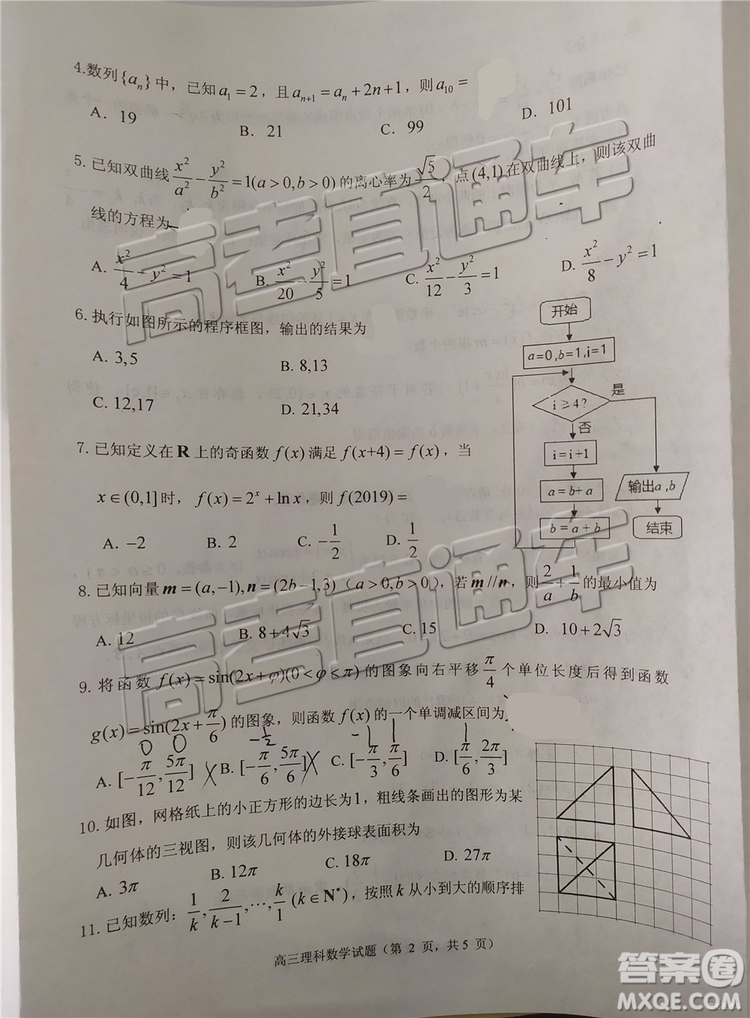 4.数列{aₙ}中，已知a₁=2，且aₙ₊₁=aₙ+2n+1，则a₁₀=
A. 19 B. 21 C. 99 D. 101
5. 已知双曲线x²/a²-y²/b²=1(a>0,b>0)的离心率为√5/2，点(4,1)在双曲线上，则该双曲
线的方程为
A. x²/4-y²=1 B. x²/20-y²/5=1 C. x²/12-y²/3=1 D. x²/8-y²=1
6. 执行如图所示的程序框图，输出的结果为
A. 3,5 B. 8,13
C. 12,17 D. 21,34
开始
a=0,b=1,i=1
i≥4?
是
否
i=i+1
a=b+a
b=a+b
输出a,b
结束
7. 已知定义在R上的奇函数f(x)满足f(x+4)=f(x)，当
x∈(0,1]时，f(x)=2ˣ+lnx，则f(2019)=
A. -2 B. 2 C. -1/2 D. 1/2
8. 已知向量m=(a,-1),n=(2b-1,3)（a>0,b>0），若m//n，则2/a+1/b的最小值为
A. 12 B. 8+4√3 C. 15 D. 10+2√3
9. 将函数f(x)=sin(2x+φ)(0<φ≤π)的图象向右平移π/4个单位长度后得到函数
g(x)=sin(2x+π/6)的图象，则函数f(x)的一个单调减区间为
A. [-π/12,5π/12] B. [-π/6,5π/6] C. [-π/3,π/6] D. [π/6,2π/3]
10. 如图，网格纸上的小正方形的边长为1，粗线条画出的图形为某
几何体的三视图，则该几何体的外接球表面积为
A. 3π B. 12π C. 18π D. 27π
11. 已知数列：1/k,2/(k-1),⋯,k/1 (k∈N*)，按照k从小到大的顺序排
高三理科数学试题（第 2 页，共 5 页）
高考直通车
高考直通车
答案卷
MXQE.COM